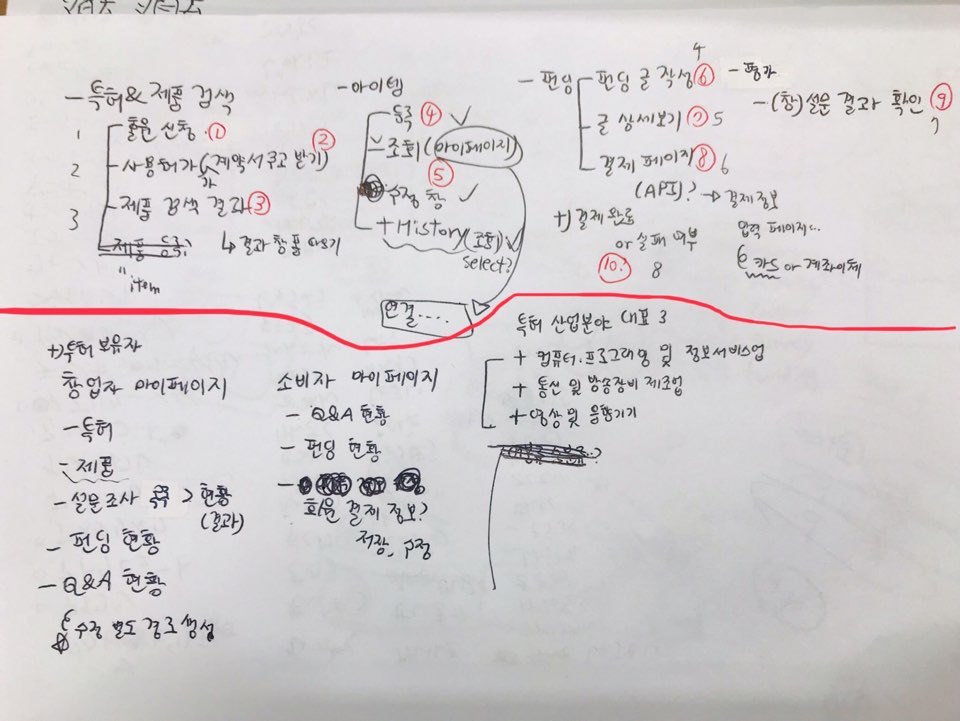 - 특허&제품 검색
1 출원 신청. ①
2 - 사용허가 (계약서 주고 받기) ②
가
3 - 제품 검색 결과 ③
↳ 결과 창
"item
- 아이템
- 등록 ④ ✓
- 조회 (마이페이지)
⑤
수정 창 ✓
+ History (조회) ✓
select?
연결....
- 펀딩
4
- 펀딩 글 작성 ⑥
- 글 상세보기 ⑦ 5
- 결제 페이지 ⑧ 6
(API)? → 결제정보
입력 페이지...
카드 or 계좌이체
+) 결제 완료
or 실패 여부
⑩? 8
- 평가
- (창) 설문 결과 확인 ⑨
7
+) 특허 보유자
창업자 마이페이지
- 특허
- 제품
- 설문조사 목록 > 현황
(결과)
- 펀딩 현황
- Q&A 현황
수정 별도 경로 생성
소비자 마이페이지
- Q&A 현황
- 펀딩 현황
-
회원 결제 정보?
저장, 수정
특허 산업분야 대표 3
+ 컴퓨터.프로그래밍 및 정보서비스업
+ 통신 및 방송장비 제조업
+ 영상 및 음향기기